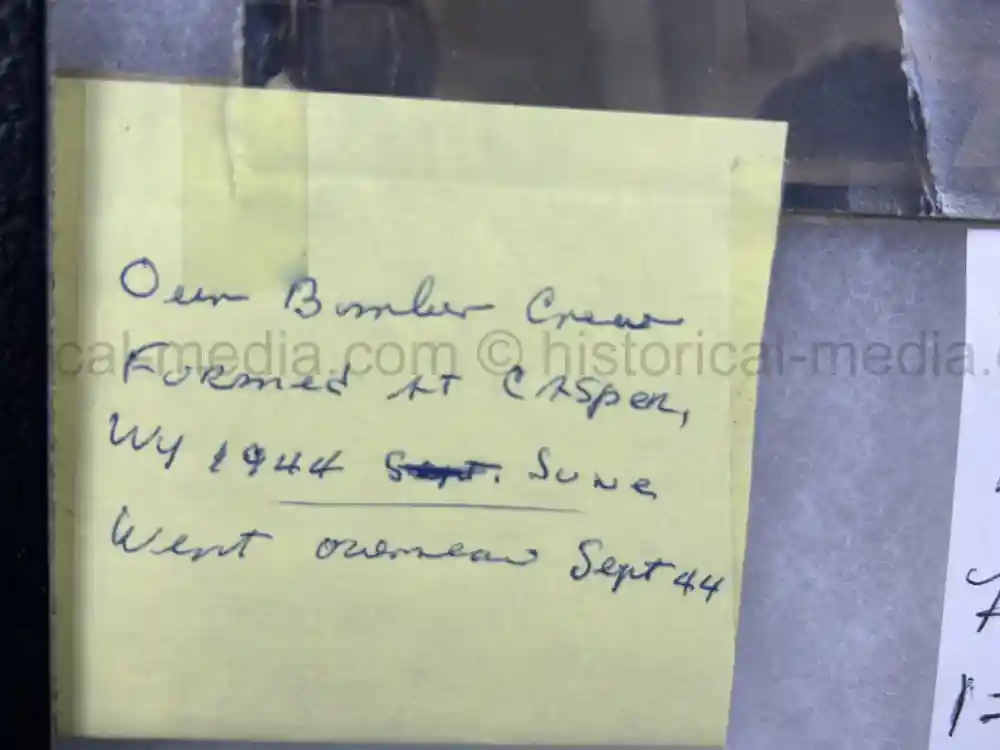 Our Bomber Crew
ical-media.com © historical-media.
Formed At CAsper,
Wy 1944 Sept. June
Went overseas Sept 44